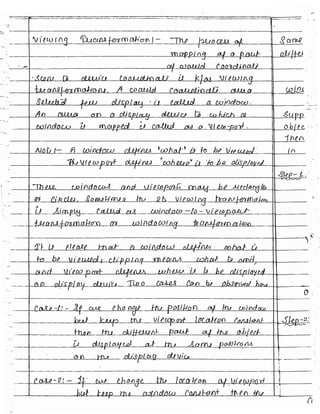 Viewing Transformation:- "The process of
mapping of a part
of world Coordinate
Scene to device Coordinate is k/as Viewing
transformations. A world coordinate area
Selected for display is called a window.
An area on a display device to which a
window is mapped is called as a View-port.
Note:- A window defines "what" is to be Viewed
The Viewport defines "where" is to be displayed.
These windows and viewports may be rectangles
or circles. Sometimes the 2D Viewing transformation
is simply called as window-to-viewport
transformation or windowing transformation.
It is that a window defines what is
to be viewed, clipping means what to omit,
and View port defines where it is to be displayed
on display device. Two cases can be observed here
Case-1:- If we change the position of the window
but keep the viewport location constant
then the different part of the object
is displayed at the same positions
on the display device
Case-2:- If we change the location of Viewport
but keep the window Constant then the
Same
Supp
objec
then
in
Step-1
Step-2: